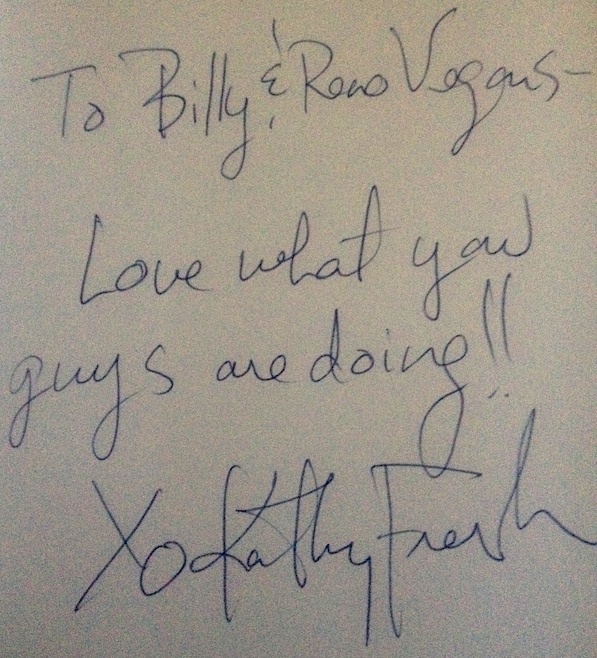 To Billy & Reno Vegans -
Love what you
guys are doing!!
XO Kathy Freston